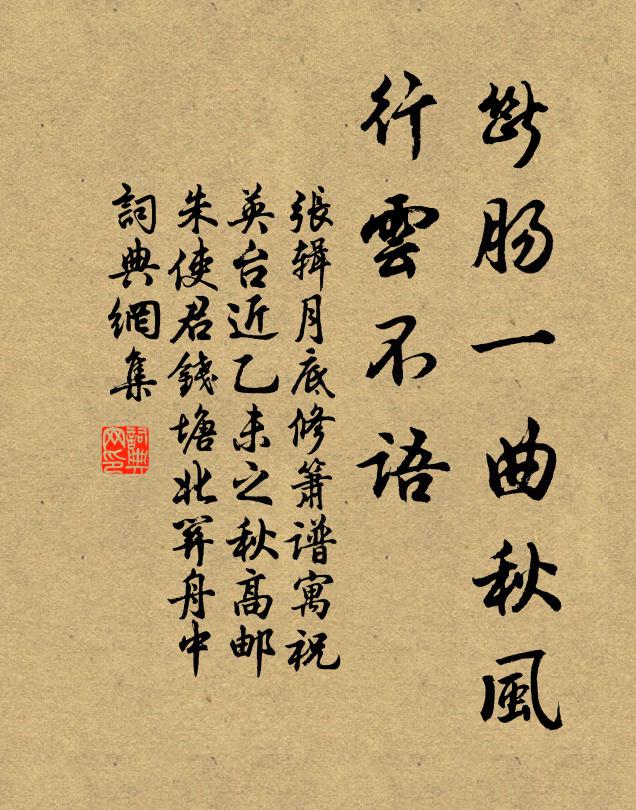 斷肠一曲秋風
行雲不語
張辑月底修簫谱寓祝
英台近乙未之秋高邮
朱使君錢塘北關舟中
詞典網集
詞典网印